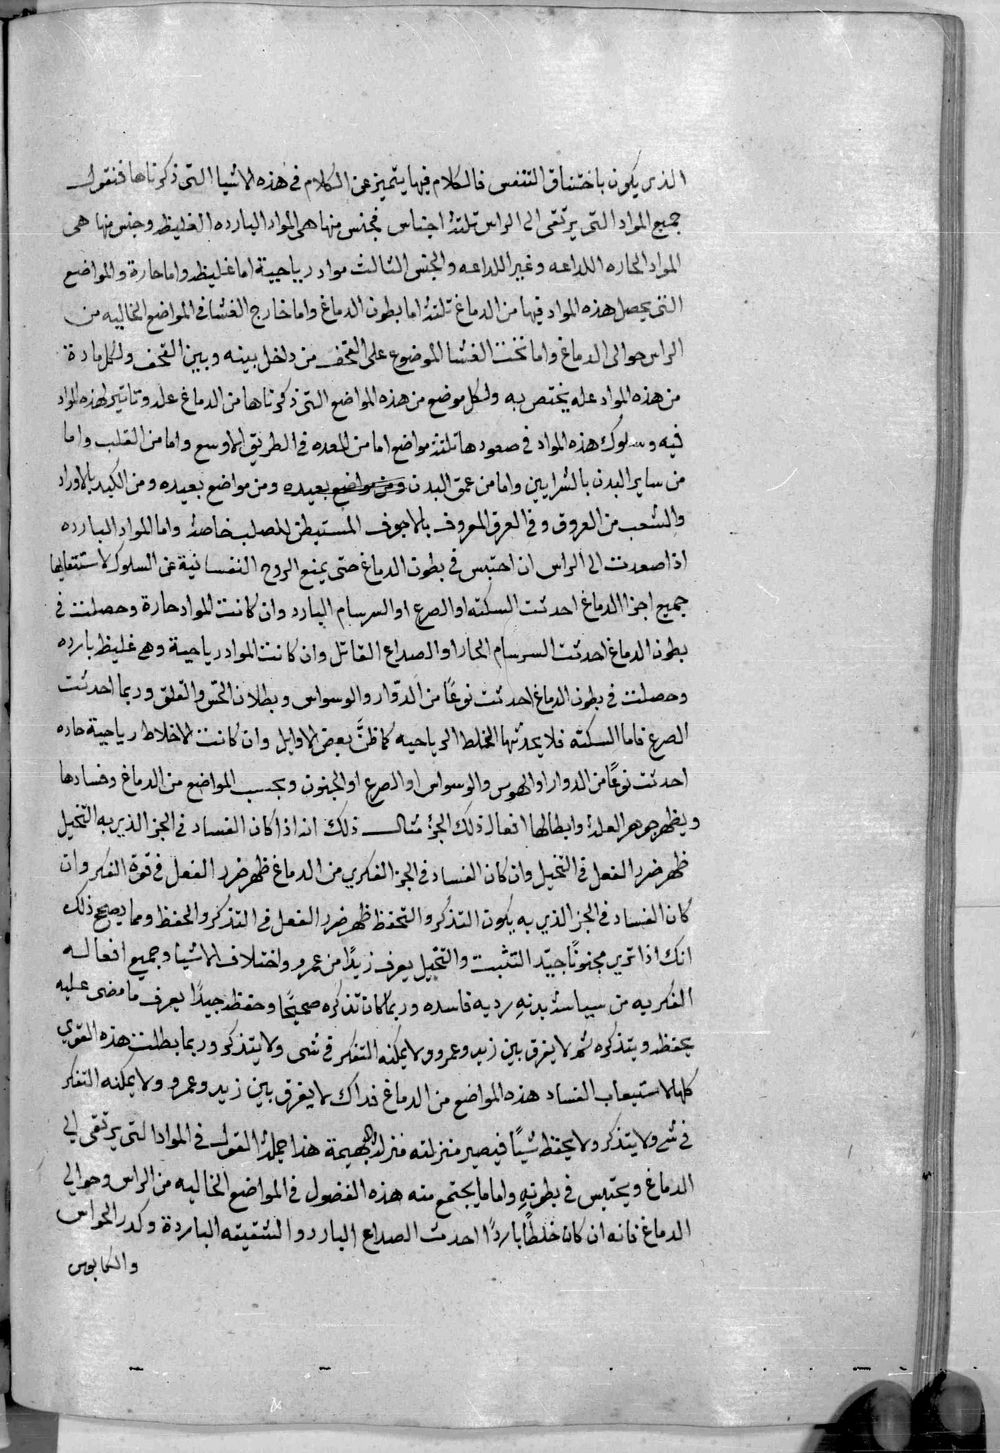 الذي يكون باختناق التنفس فالكلام فيها يتميز عن الكلام في هذه الاشيا التي ذكرناها فنقول
جميع المواد التي يرتقى الى الراس ثلثة اجناس فجنس منها هى المواد البارده الغليظه وجنس منها هى
المواد الحاره اللداعه وغير اللداعه والجنس الثالث مواد رياحية اما غليظه واما حارة والمواضع
التى يحصل هذه المواد فيها من الدماغ ثلثة اما بطون الدماغ واما خارج الغشا فى المواضع الخاليه من
الراس حوالى الدماغ واما تحت الغشا الموضوع على القحف من داخل بينه وبين القحف ولكل مادة
من هذه المواد عله يختص به ولكل موضع من هذه المواضع التى ذكرناها من الدماغ عله وتاثير لهذه المواد
فيه وسلوك هذه المواد في صعودها ثلثة مواضع اما من المعده فى الطريق الاوسع واما من القلب واما
من ساير البدن بالشرايين واما من عمق البدن ومن مواضع بعيده ومن مواضع بعيده ومن الكبد بالاوراد
والشعب من العروق وفى العرق المعروف بالاجوف المستبطن للصلب خاصة واما المواد البارده
اذا صعدت الى الراس ان احتبس فى بطون الدماغ حتى يمنع الروح النفسانية عن السلوك لاستنقايها
جميع اجزا الدماغ احدثت السكته او الصرع او السرسام البارد وان كانت المواد حارة وحصلت فى
بطون الدماغ احدثت السرسام الحار او الصداع القاتل وان كانت المواد رياحية وهى غليظه بارده
وحصلت فى بطون الدماغ احدثت نوعًا من الدوار والوسواس وبطلان الحس والقلق وربما احدثت
الصرع فاما السكته فلا يحدثها الخلط الرياحيه كما ظنَّ بعض الاوايل وان كانت الاخلاط رياحية حاده
احدثت نوعًا من الدوار او الهوس والوسواس او الصرع او الجنون وبحسب المواضع من الدماغ وفسادها
ويظهر جوهر العلة وابطالها افعال ذلك الجزء مثال ذلك انه اذا كان الفساد فى الجز الذي به التخيل
ظهر ضرر الفعل فى التخيل وان كان الفساد فى الجز الفكري من الدماغ ظهر ضرر الفعل فى قوة الفكر وان
كان الفساد فى الجز الذي به يكون التذكر والتحفظ ظهر ضرر الفعل فى التذكر والحفظ ومما يصحح ذلك
انك اذا ترى مجنونًا جيّد التثبت والتخيل يعرف زيدًا من عمرو واختلاف الاشيا وجميع افعاله
الفكريه من سياسة بدنه رديه فاسده وربما كان تذكره صحيحًا وحفظه جيدًا يعرف ما مضى عليه
يحفظه ويتذكره ثم لا يفرق بين زيد وعمرو ولا يمكنه التفكر فى شى ولا يتذكر وربما بطلت هذه القوي
كلها لاستيعاب الفساد هذه المواضع من الدماغ فذاك لا يفرق بين زيد وعمرو ولا يمكنه التفكر
فى شى ولا يتذكر ولا يحفظ شيًا فيصير منزلته منزله البهيمة هذا جملة القول فى المواد التى يرتقى الي
الدماغ ويحتبس فى بطونه واما ما يجتمع منه هذه الفضول فى المواضع الخاليه من الراس وحوالي
الدماغ فانه ان كان خلطًا باردًا احدث الصداع البارد والشقيقه الباردة وكدر الحواس
والكابوس